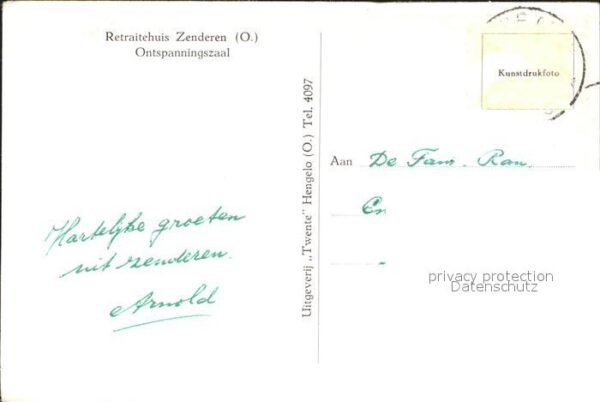 Retraitehuis Zenderen (O.)
Ontspanningszaal
Hartelijke groeten
uit zenderen.
Arnold
Uitgeverij „Twente" Hengelo (O.) Tel. 4097
Kunstdrukfoto
Aan De Fam. Ran
En
privacy protection
Datenschutz